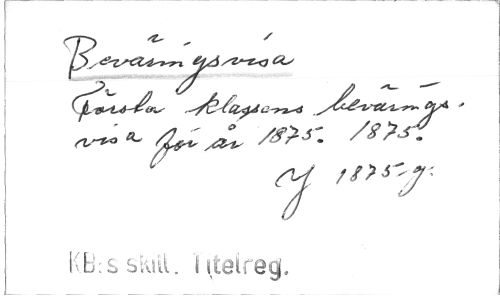 Beväringsvisa
Första klassens bevärings-
visa för år 1875. 1875.
Y 1875-g.
KB:s skill. Titelreg.